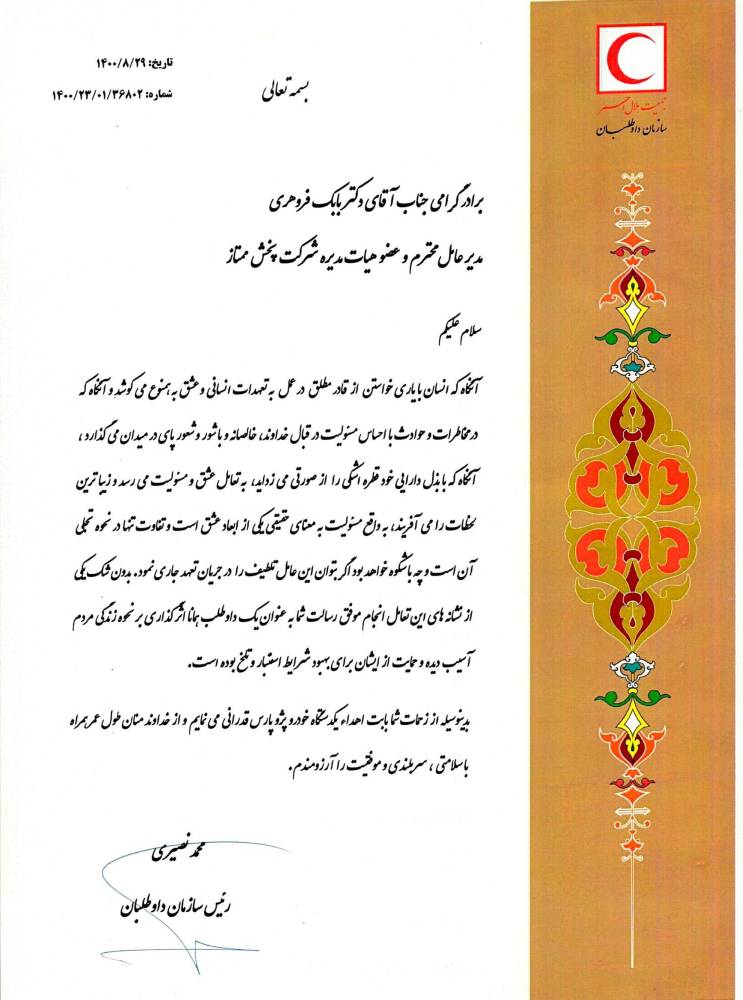 جمعیت هلال احمر
سازمان داوطلبان
تاریخ: ۱۴۰۰/۸/۲۹
شماره: ۱۴۰۰/۲۳/۰۱/۳۶۸۰۲
بسمه تعالی
برادر گرامی جناب آقای دکتر بابک فروهری
مدیر عامل محترم و عضو هیات مدیره شرکت پخش ممتاز
سلام علیکم
آنگاه که انسان با یاری خواستن از قادر مطلق در عمل به تعهدات انسانی و عشق به همنوع می کوشد و آنگاه که
در مخاطرات و حوادث با احساس مسئولیت در قبال خداوند، خالصانه و باشور و شعور پای در میدان می گذارد،
آنگاه که با بذل دارایی خود قطره اشکی را از صورتی می زداید، به تعامل عشق و مسئولیت می رسد و زیباترین
لحظات را می آفریند، به واقع مسئولیت به معنای حقیقی یکی از ابعاد عشق است و تفاوت تنها در نحوه تجلی
آن است و چه باشکوه خواهد بود اگر بتوان این عامل تلطیف را در جریان تعهد جاری نمود. بدون شک یکی
از نشانه های این تعامل انجام موفق رسالت شما به عنوان یک داوطلب همانا اثر گذاری بر نحوه زندگی مردم
آسیب دیده و حمایت از ایشان برای بهبود شرایط اسفبار و تلخ بوده است.
بدینوسیله از زحمات شما بابت اهداء یکدستگاه خودرو پژو پارس قدردانی می نمایم و از خداوند منان طول عمر همراه
باسلامتی، سربلندی و موفقیت را آرزومندم.
محمد نصیری
رئیس سازمان داوطلبان